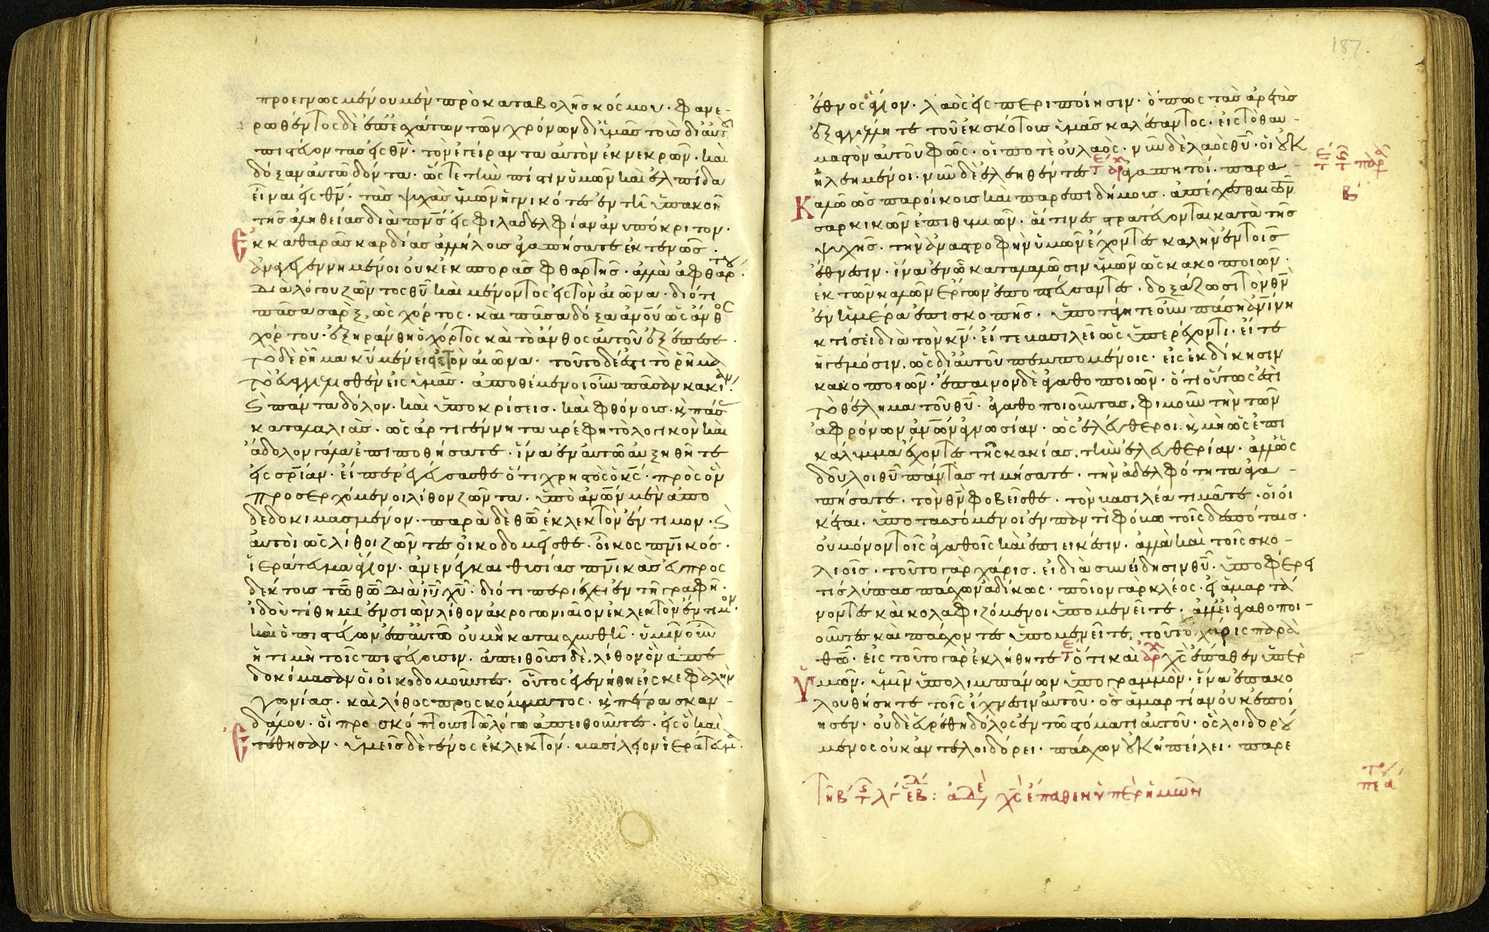 προεγνωσμένου μὲν πρὸ καταβολῆς κόσμου · φανε-
ρωθέντος δὲ ἐπ' ἐσχάτων τῶν χρόνων δι' ὑμᾶς τοὺς δι' αὐτοῦ
πιστεύοντας εἰς θν̅ · τὸν ἐγείραντα αὐτὸν ἐκ νεκρῶν · καὶ
δόξαν αὐτῷ δόντα · ὥστε τὴν πίστιν ὑμῶν καὶ ἐλπίδα
εἶναι εἰς θν̅ · τὰς ψυχὰς ὑμῶν ἡγνικότες ἐν τῇ ὑπακοῇ
τῆς ἀληθείας διὰ πν̅ς εἰς φιλαδελφίαν ἀνυπόκριτον ·
ἐκ καθαρᾶς καρδίας ἀλλήλους ἀγαπήσατε ἐκτενῶς ·
ἀναγεγεννημένοι οὐκ ἐκ σπορᾶς φθαρτῆς · ἀλλὰ ἀφθάρτου ·
διὰ λόγου ζῶντος θυ̅ καὶ μένοντος εἰς τὸν αἰῶνα · διότι
πᾶσα σὰρξ, ὡς χόρτος · καὶ πᾶσα δόξα ἀνου̅ ὡς ἄνθος
χόρτου · ἐξηράνθη ὁ χόρτος καὶ τὸ ἄνθος αὐτοῦ ἐξέπεσε ·
τὸ δὲ ῥῆμα κυ̅ μένει εἰς τὸν αἰῶνα · τοῦτο δέ ἐστι τὸ ῥῆμα
τὸ εὐαγγελισθὲν εἰς ὑμᾶς · ἀποθέμενοι οὖν πᾶσαν κακίαν ·
καὶ πάντα δόλον · καὶ ὑποκρίσεις · καὶ φθόνους · καὶ πάσας
καταλαλιάς · ὡς ἀρτιγέννητα βρέφη τὸ λογικὸν καὶ
ἄδολον γάλα ἐπιποθήσατε · ἵνα ἐν αὐτῷ αὐξηθῆτε
εἰς σρ̅ίαν · εἴπερ ἐγεύσασθε ὅτι χρηστὸς ὁ κς̅ · πρὸς ὃν
προσερχόμενοι λίθον ζῶντα · ὑπὸ ἀνω̅ν μὲν ἀπο
δεδοκιμασμένον · παρὰ δὲ θω̅ ἐκλεκτὸν ἔντιμον · καὶ
αὐτοὶ ὡς λίθοι ζῶντες οἰκοδομεῖσθε · οἶκος πν̅ικός ·
ἱεράτευμα ἅγιον · ἀνενέγκαι θυσίας πν̅ικὰς εὐπρος
δέκτους τῷ θω̅ διὰ ιυ̅ χυ̅ · διότι περιέχει ἐν τῇ γραφῇ ·
ἰδοὺ τίθημι ἐν σιὼν λίθον ἀκρογωνιαῖον ἐκλεκτὸν ἔντιμον ·
καὶ ὁ πιστεύων ἐπ' αὐτῷ οὐ μὴ καταισχυνθῇ · ὑμῖν οὖν
ἡ τιμὴ τοῖς πιστεύουσιν · ἀπειθοῦσι δὲ, λίθον ὃν ἀπε
δοκίμασαν οἱ οἰκοδομοῦντες · οὗτος ἐγενήθη εἰς κεφαλὴν
γωνίας · καὶ λίθος προσκόμματος · καὶ πέτρα σκαν-
δάλου · οἳ προσκόπτουσι τῷ λόγῳ ἀπειθοῦντες · εἰς ὃ καὶ
ἐτέθησαν · ὑμεῖς δὲ γένος ἐκλεκτόν · βασίλειον ἱεράτευμα ·
187.
ἔθνος ἅγιον · λαὸς εἰς περιποίησιν · ὅπως τὰς ἀρετὰς
ἐξαγγείλητε τοῦ ἐκ σκότους ὑμᾶς καλέσαντος · εἰς τὸ θαυ-
μαστὸν αὐτοῦ φῶς · οἵ ποτε οὐ λαός · νῦν δὲ λαὸς θυ̅ · οἱ οὐκ
ἠλεημένοι · νῦν δὲ ἐλεηθέντες ἀγαπητοί · παρα-
καλῶ ὡς παροίκους καὶ παρεπιδήμους · ἀπέχεσθαι τῶν
σαρκικῶν ἐπιθυμιῶν · αἵτινες στρατεύονται κατὰ τῆς
ψυχῆς · τὴν ἀναστροφὴν ὑμῶν ἔχοντες καλὴν ἐν τοῖς
ἔθνεσιν · ἵνα ἐν ᾧ καταλαλῶσιν ὑμῶν ὡς κακοποιῶν ·
ἐκ τῶν καλῶν ἔργων ἐποπτεύσαντες · δοξάζωσι τὸν θν̅
ἐν ἡμέρᾳ ἐπισκοπῆς · ὑποτάγητε οὖν πάσῃ ἀν̅ίνῃ
κτίσει διὰ τὸν κν̅ · εἴτε βασιλεῖ ὡς ὑπερέχοντι · εἴτε
ἡγεμόσιν, ὡς δι' αὐτοῦ πεμπομένοις · εἰς ἐκδίκησιν
κακοποιῶν · ἔπαινον δὲ ἀγαθοποιῶν · ὅτι οὕτως ἐστὶ
τὸ θέλημα τοῦ θυ̅ · ἀγαθοποιοῦντας, φιμοῦν τὴν τῶν
ἀφρόνων ἀνω̅ν ἀγνωσίαν · ὡς ἐλεύθεροι · καὶ μὴ ὡς ἐπι
κάλυμμα ἔχοντες τῆς κακίας, τὴν ἐλευθερίαν · ἀλλ' ὡς
δοῦλοι θυ̅ πάντας τιμήσατε · τὴν ἀδελφότητα ἀγα-
πήσατε · τὸν θν̅ φοβεῖσθε · τὸν βασιλέα τιμᾶτε · οἱ οἰ
κέται · ὑποτασσόμενοι ἐν παντὶ φόβῳ τοῖς δεσπόταις ·
οὐ μόνον τοῖς ἀγαθοῖς καὶ ἐπιεικέσιν · ἀλλὰ καὶ τοῖς σκο-
λιοῖς · τοῦτο γὰρ χάρις · εἰ διὰ συνείδησιν θυ̅ · ὑποφέρει
τις λύπας πάσχων ἀδίκως · ποῖον γὰρ κλέος · εἰ ἁμαρτά
νοντες καὶ κολαφιζόμενοι ὑπομένεῖτε · ἀλλ' εἰ ἀγαθοποι-
οῦντες καὶ πάσχοντες ὑπομένεῖτε, τοῦτο χάρις παρὰ
θω̅ · εἰς τοῦτο γὰρ ἐκλήθητε ὅτι καὶ χς̅ ἔπαθεν ὑπὲρ
ὑμῶν · ὑμῖν ὑπολιμπάνων ὑπογραμμόν · ἵνα ἐπακο
λουθήσητε τοῖς ἴχνεσιν αὐτοῦ · ὃς ἁμαρτίαν οὐκ ἐποί
ησεν · οὐδὲ εὑρέθη δόλος ἐν τῷ στόματι αὐτοῦ · ὃς λοιδορού
μενος οὐκ ἀντελοιδόρει · πάσχων οὐκ ἠπείλει · παρε
χς̅ ἔπαθεν ὑπὲρ ἡμῶν